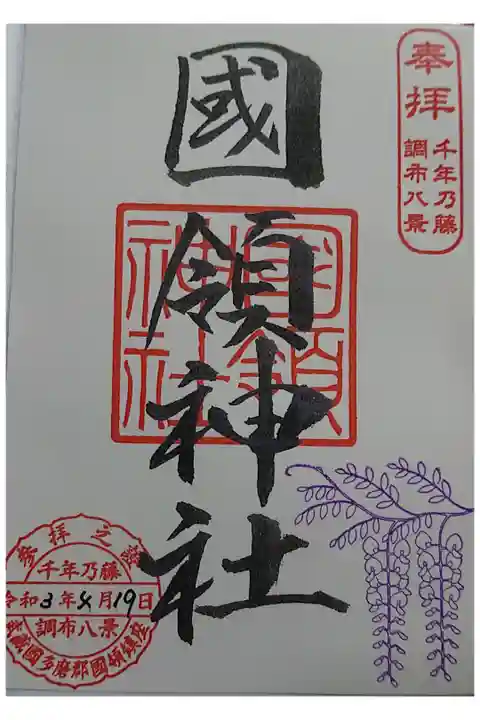 奉拝
千年乃藤
調布八景
國領神社
國領
神社
参拝之証
千年乃藤
令和3年4月19日
調布八景
武蔵國多磨郡國領鎮座